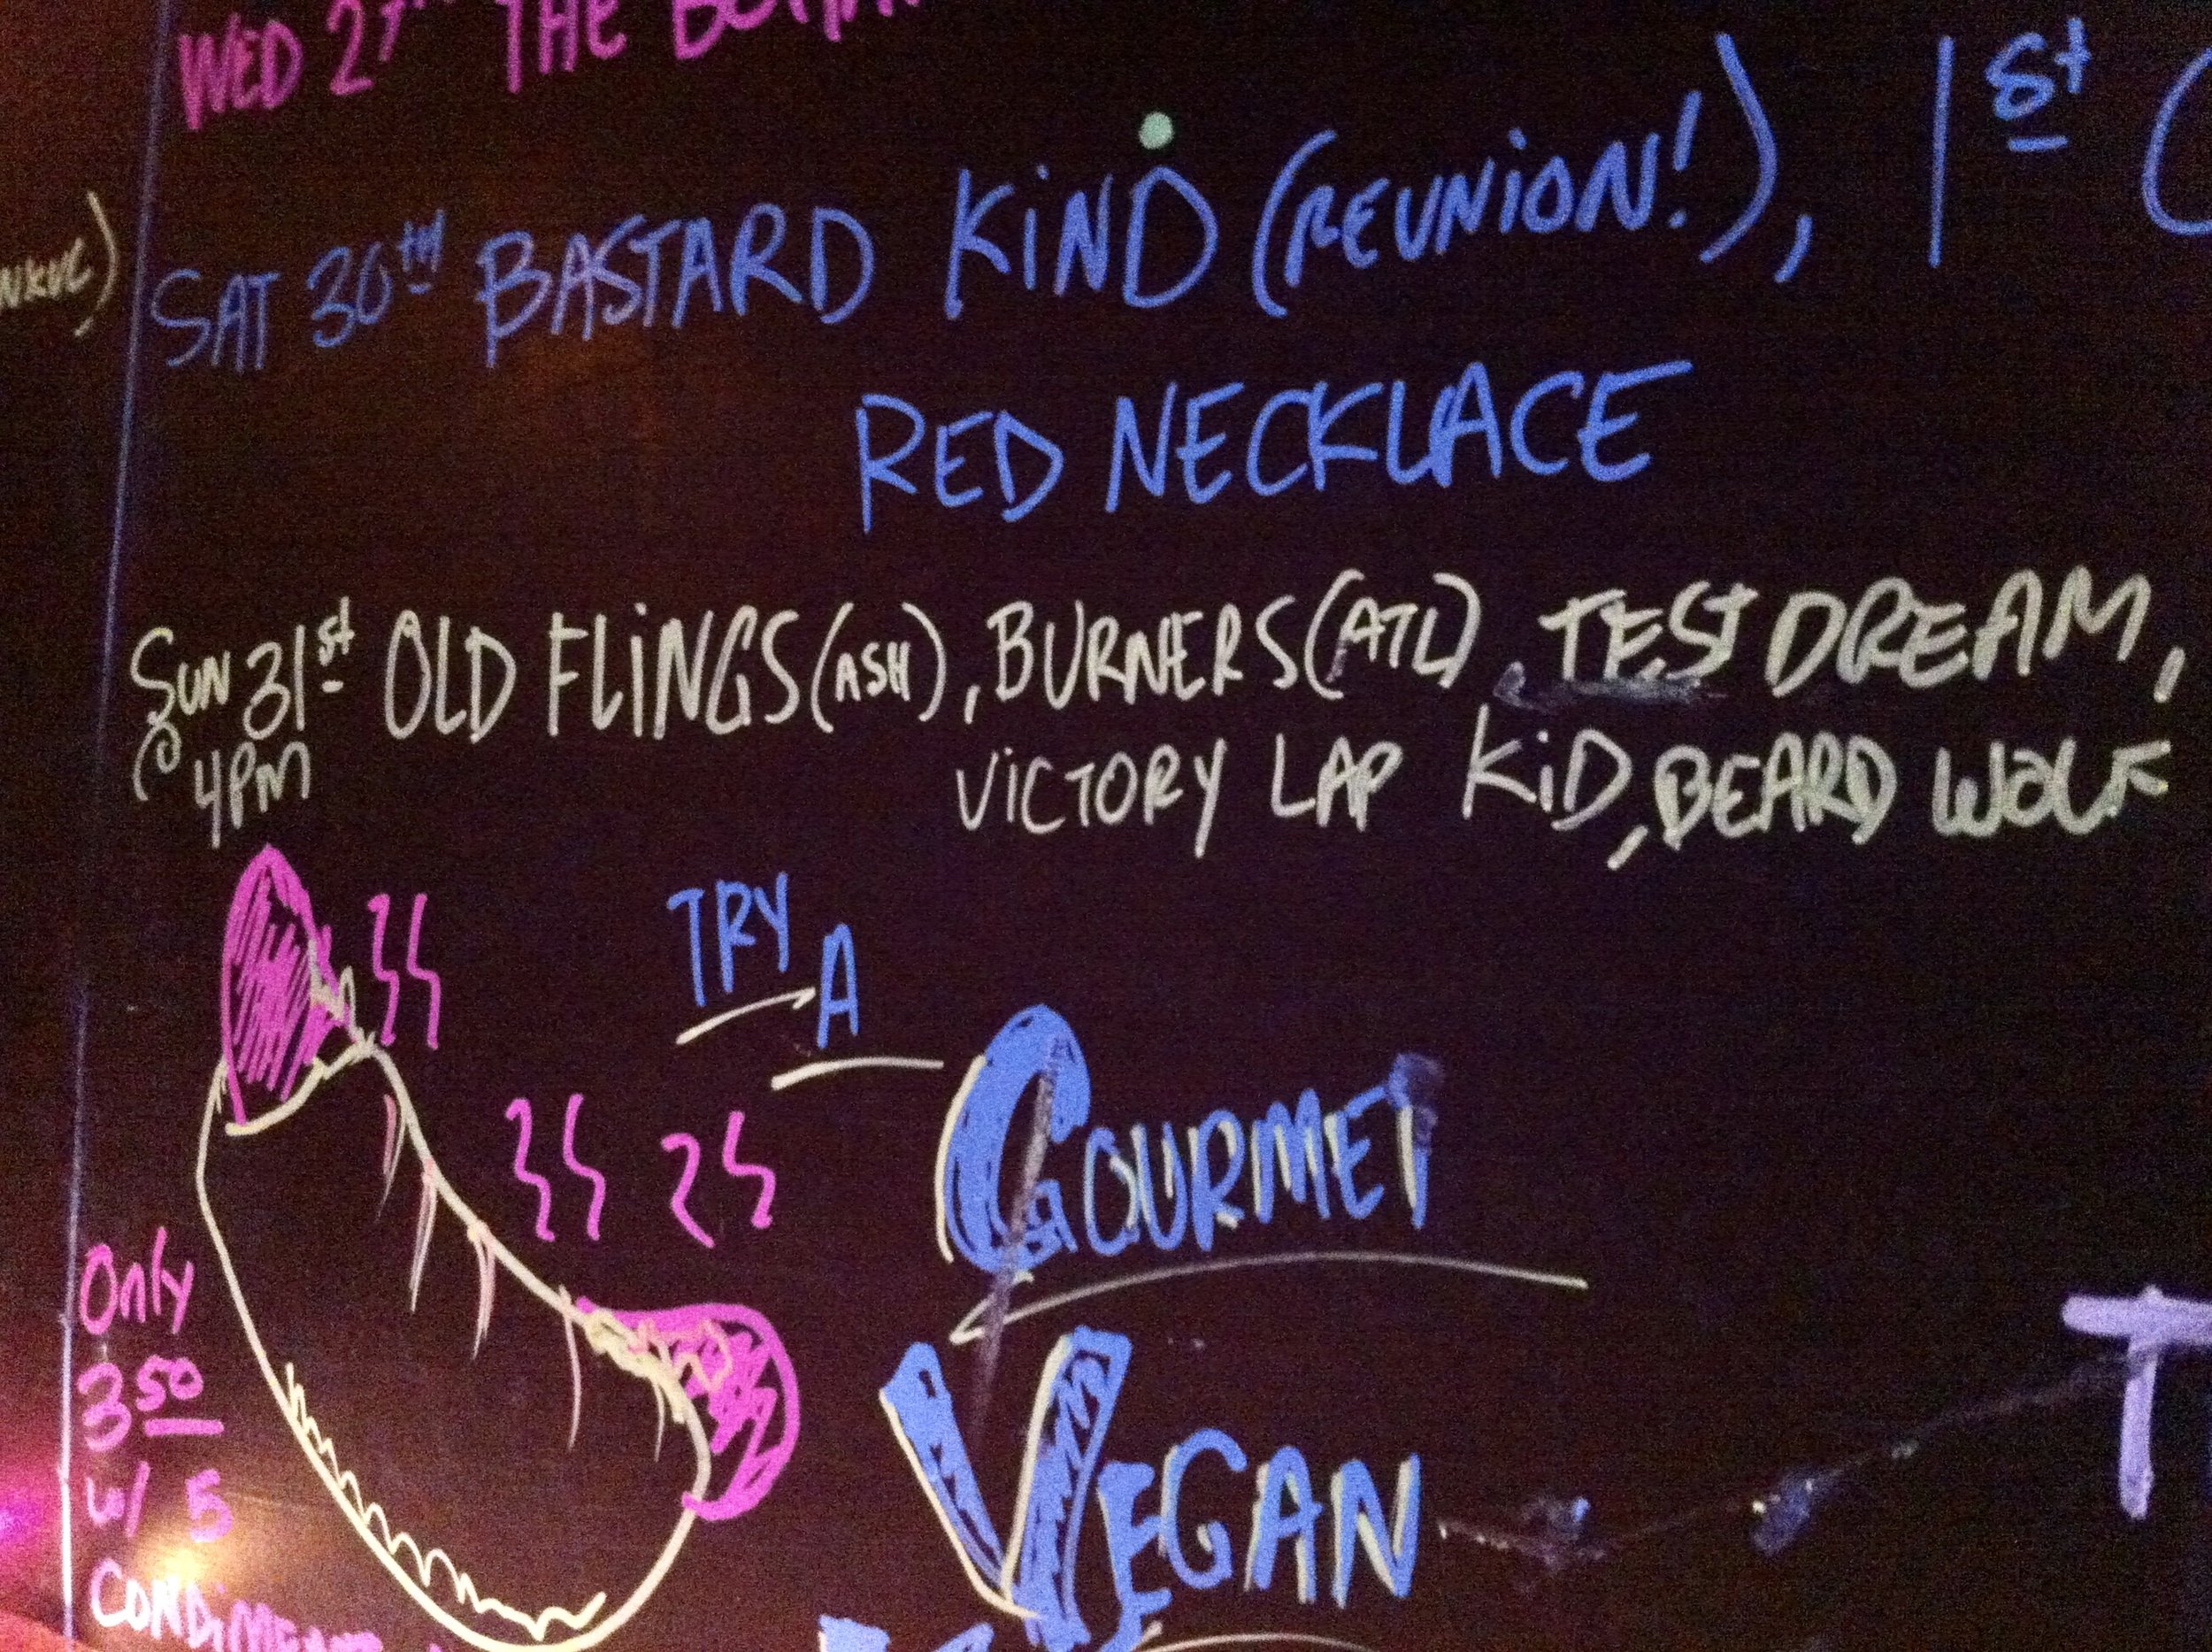 WED 27TH THE
SAT 30TH BASTARD KIND (REUNION!), 1St
RED NECKLACE
SUN 31St OLD FLINGS (ASH), BURNERS (ATL), TEST DREAM,
@ 4PM
VICTORY LAP KID, BEARD WOLF
TRY
A
GOURMET
VEGAN
Only
3 50
w/ 5
CONDIMENT
T